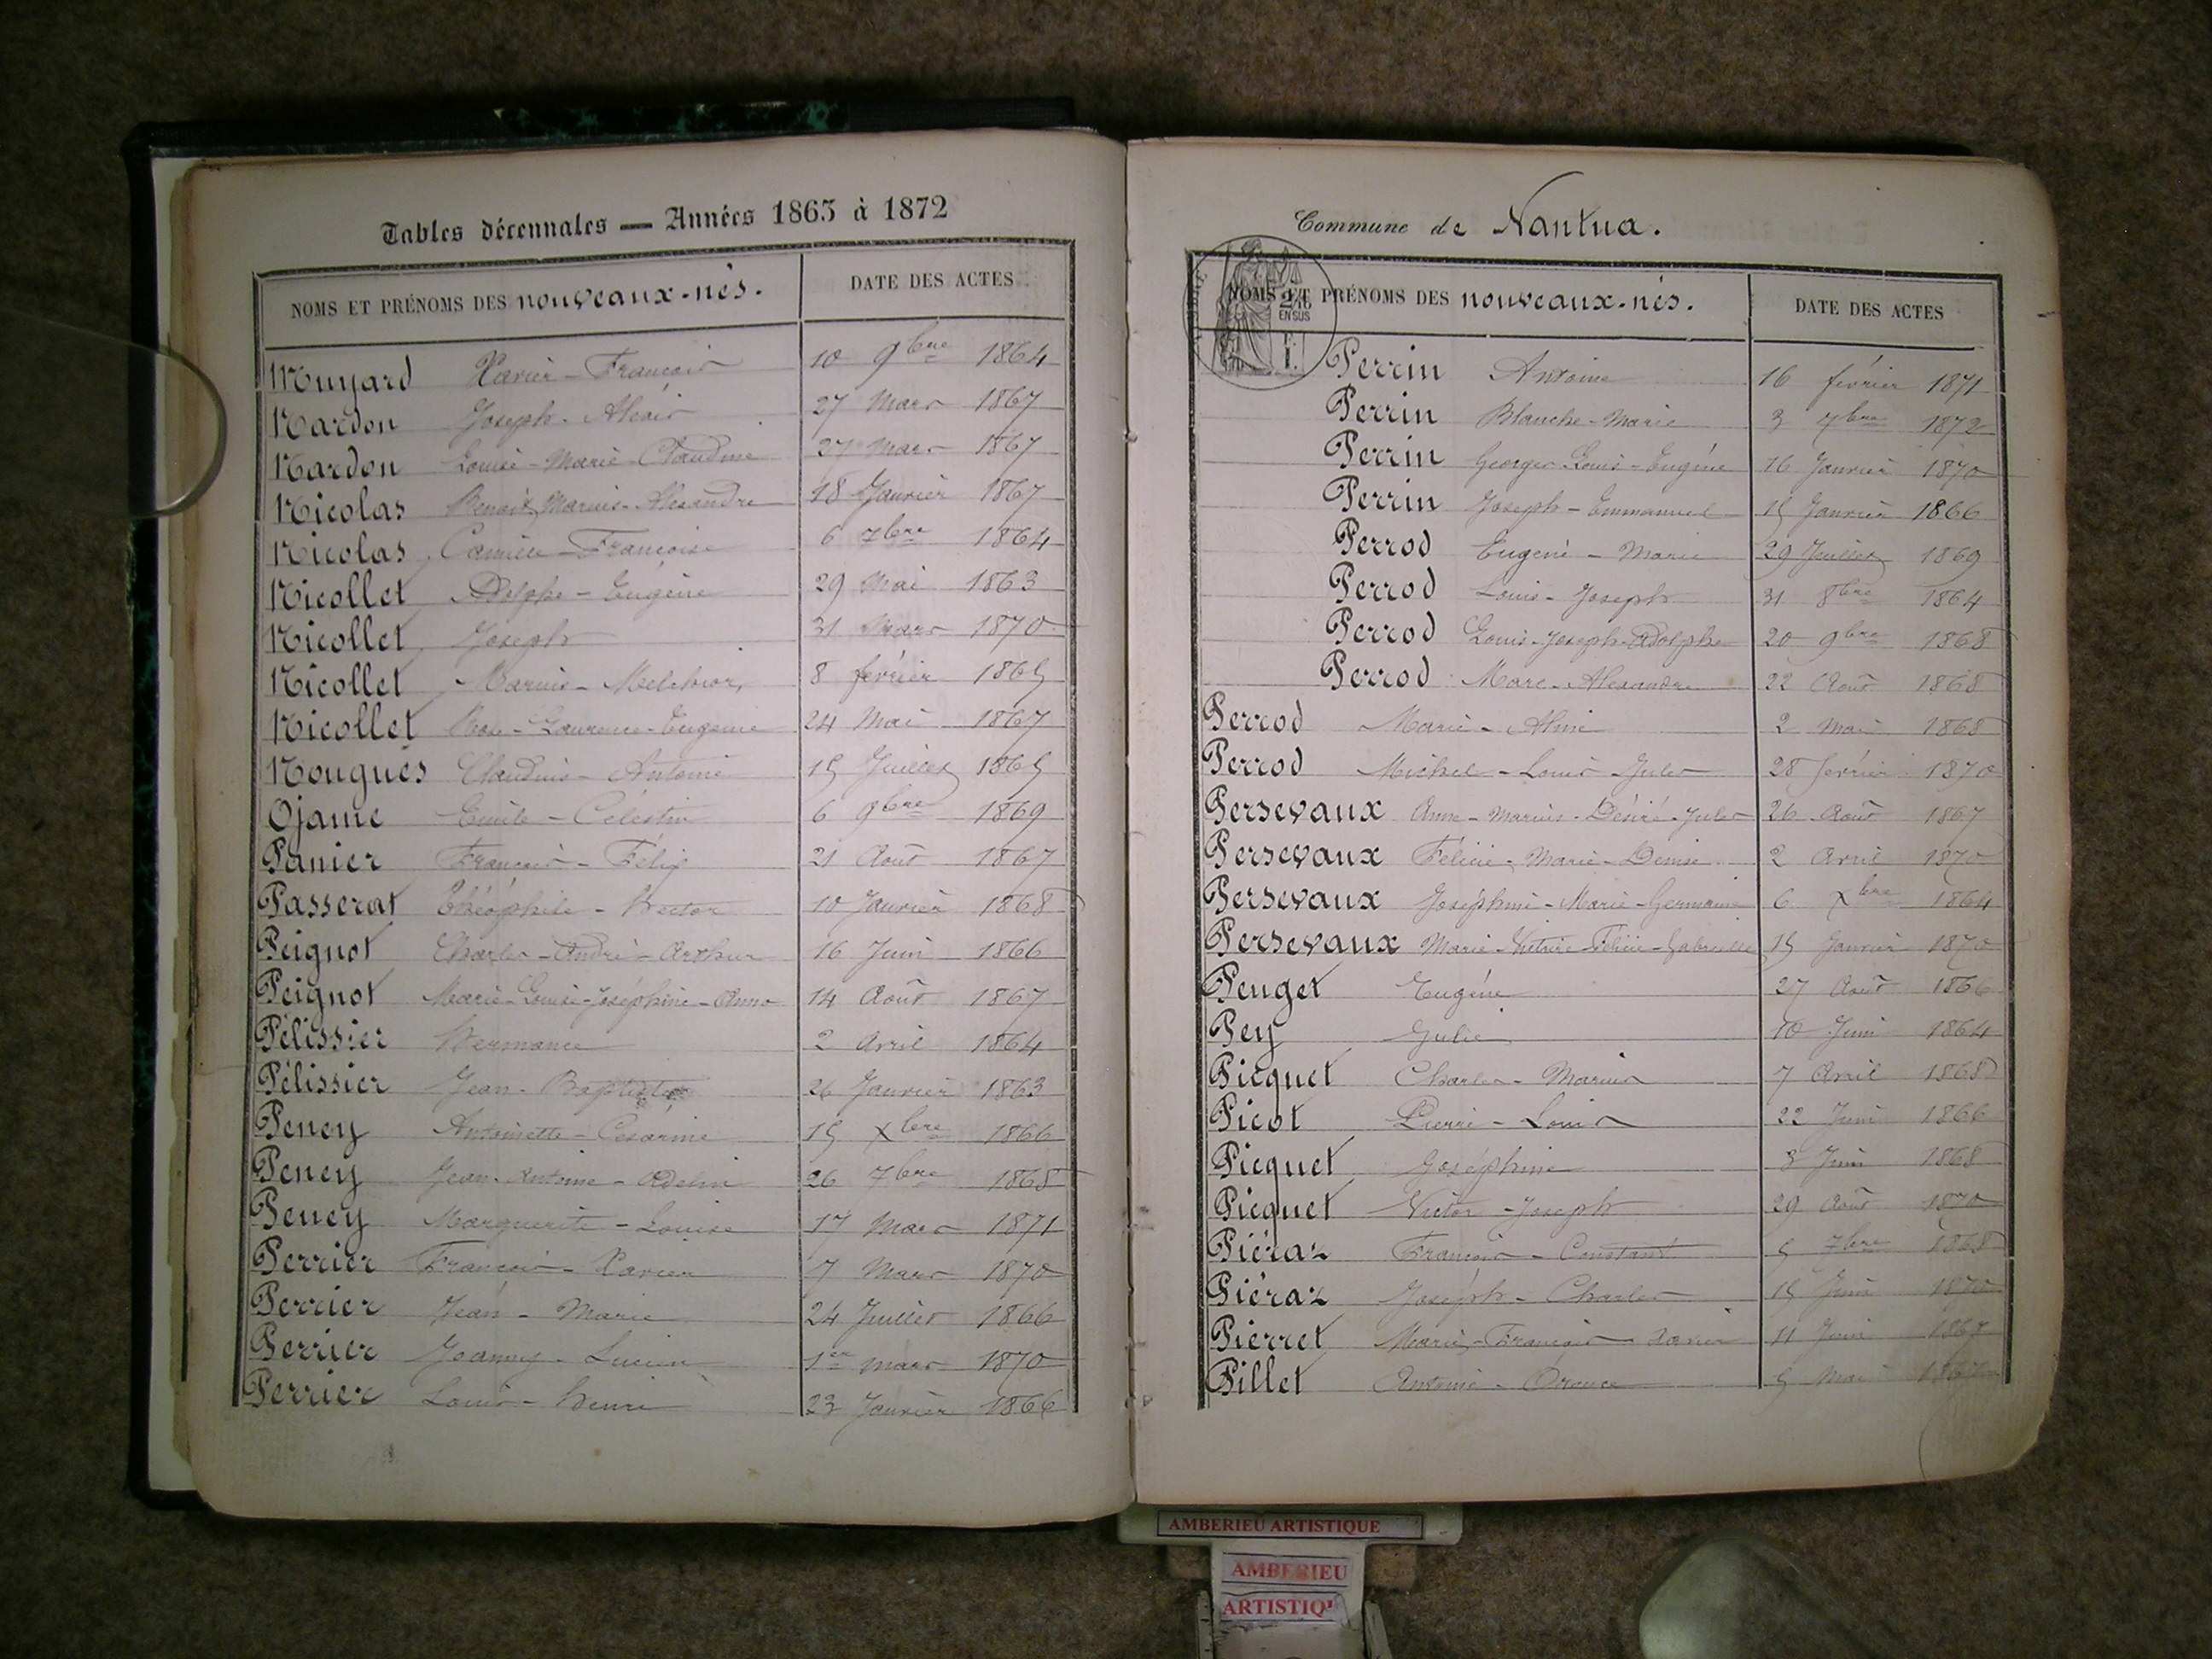 Tables décennales — Années 1863 à 1872
NOMS ET PRÉNOMS DES nouveaux-nés. DATE DES ACTES
Muyard Xavier-François 10 9bre 1864
Nardon Joseph-Alexis 27 Mars 1867
Nardon Louise-Marie-Claudine 27 Mars 1867
Nicolas Benoit Marius-Alexandre 18 Janvier 1867
Nicolas Camille-Françoise 6 7bre 1864
Nicollet Adolphe-Eugène 29 Mai 1863
Nicollet Joseph 31 Mars 1870
Nicollet Marius-Melchior 8 février 1865
Nicollet Rose-Laurence-Eugénie 24 Mai 1867
Nouguès Claudius-Antoine 15 Juillet 1865
Ojame Emile-Célestin 6 9bre 1869
Panier François-Félix 21 Août 1867
Passerat Théophile-Hector 10 Janvier 1868
Peignot Charles-André-Arthur 16 Juin 1866
Peignot Marie-Louise-Joséphine-Anna 14 Août 1867
Pélissier Hermance 2 Avril 1864
Pélissier Jean-Baptiste 26 Janvier 1863
Peney Antoinette-Césarine 15 Xbre 1866
Peney Jean-Antoine-Adelin 26 7bre 1868
Peney Marguerite-Louise 17 Mars 1871
Perrier François-Xavier 7 Mars 1870
Perrier Jean-Marie 24 Juillet 1866
Perrier Joanny-Lucien 1er mars 1870
Perrier Louis-Henri 23 Janvier 1866
Commune de Nantua.
NOMS ET PRÉNOMS DES nouveaux-nés. DATE DES ACTES
2/10 EN SUS
Perrin Antoine 16 février 1871
Perrin Blanche-Marie 3 7bre 1872
Perrin Georges Louis-Eugène 16 Janvier 1870
Perrin Joseph-Emmanuel 15 Janvier 1866
Perrod Eugène-Marie 29 Juillet 1869
Perrod Louis-Joseph 31 8bre 1864
Perrod Louis-Joseph-Adolphe 20 9bre 1868
Perrod Marc-Alexandre 22 Août 1868
Perrod Marie-Aline 2 Mai 1868
Perrod Michel-Louis-Jules 28 février 1870
Persevaux Anne-Marius-Désiré-Jules 26 Août 1867
Persevaux Félicie-Marie-Denise 2 Avril 1870
Persevaux Joséphine-Marie-Germaine 6 Xbre 1864
Persevaux Marie-Victoire-Félicie-Gabrielle 15 Janvier 1870
Peuget Eugène 27 Août 1866
Pey Julie 10 Juin 1864
Picquet Charles-Marius 7 Avril 1868
Picot Pierre-Louis 22 Juin 1866
Picquet Joséphine 3 Juin 1868
Picquet Victor-Joseph 29 Août 1870
Piéraz François-Constant 5 7bre 1868
Piéraz Joseph-Charles 15 Juin 1870
Pierret Marie-François Xavier 11 Juin
Pillet Antoine 5 Mai
AMBERIEU ARTISTIQUE
AMBERIEU
ARTISTIQ